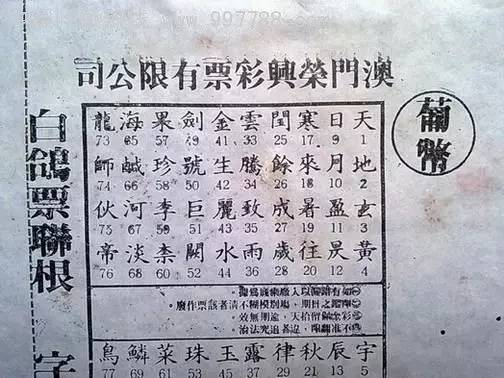 www.997788.com
澳門榮興彩票有限公司
葡幣
白鴿票聯根 字
天 地 玄 黃
1 2 3 4
日 月 盈 昃
9 10 11 12
寒 來 暑 往
17 18 19 20
閏 餘 成 歲
25 26 27 28
雲 騰 致 雨
33 34 35 36
金 生 麗 水
41 42 43 44
劍 號 巨 闕
49 50 51 52
果 珍 李 柰
57 58 59 60
海 鹹 河 淡
65 66 67 68
龍 師 伏 帝
73 74 75 76
如有錯漏以入廠票底為據。
日期,塲別模糊不清者該票作廢。
彩金祇留拾天,逾期無效。
不准翻印,違者追究法治。
宇 辰 秋 律 露 玉 珠 菜 鱗 鳥
5 13 21 29 37 45 53 61 69 77